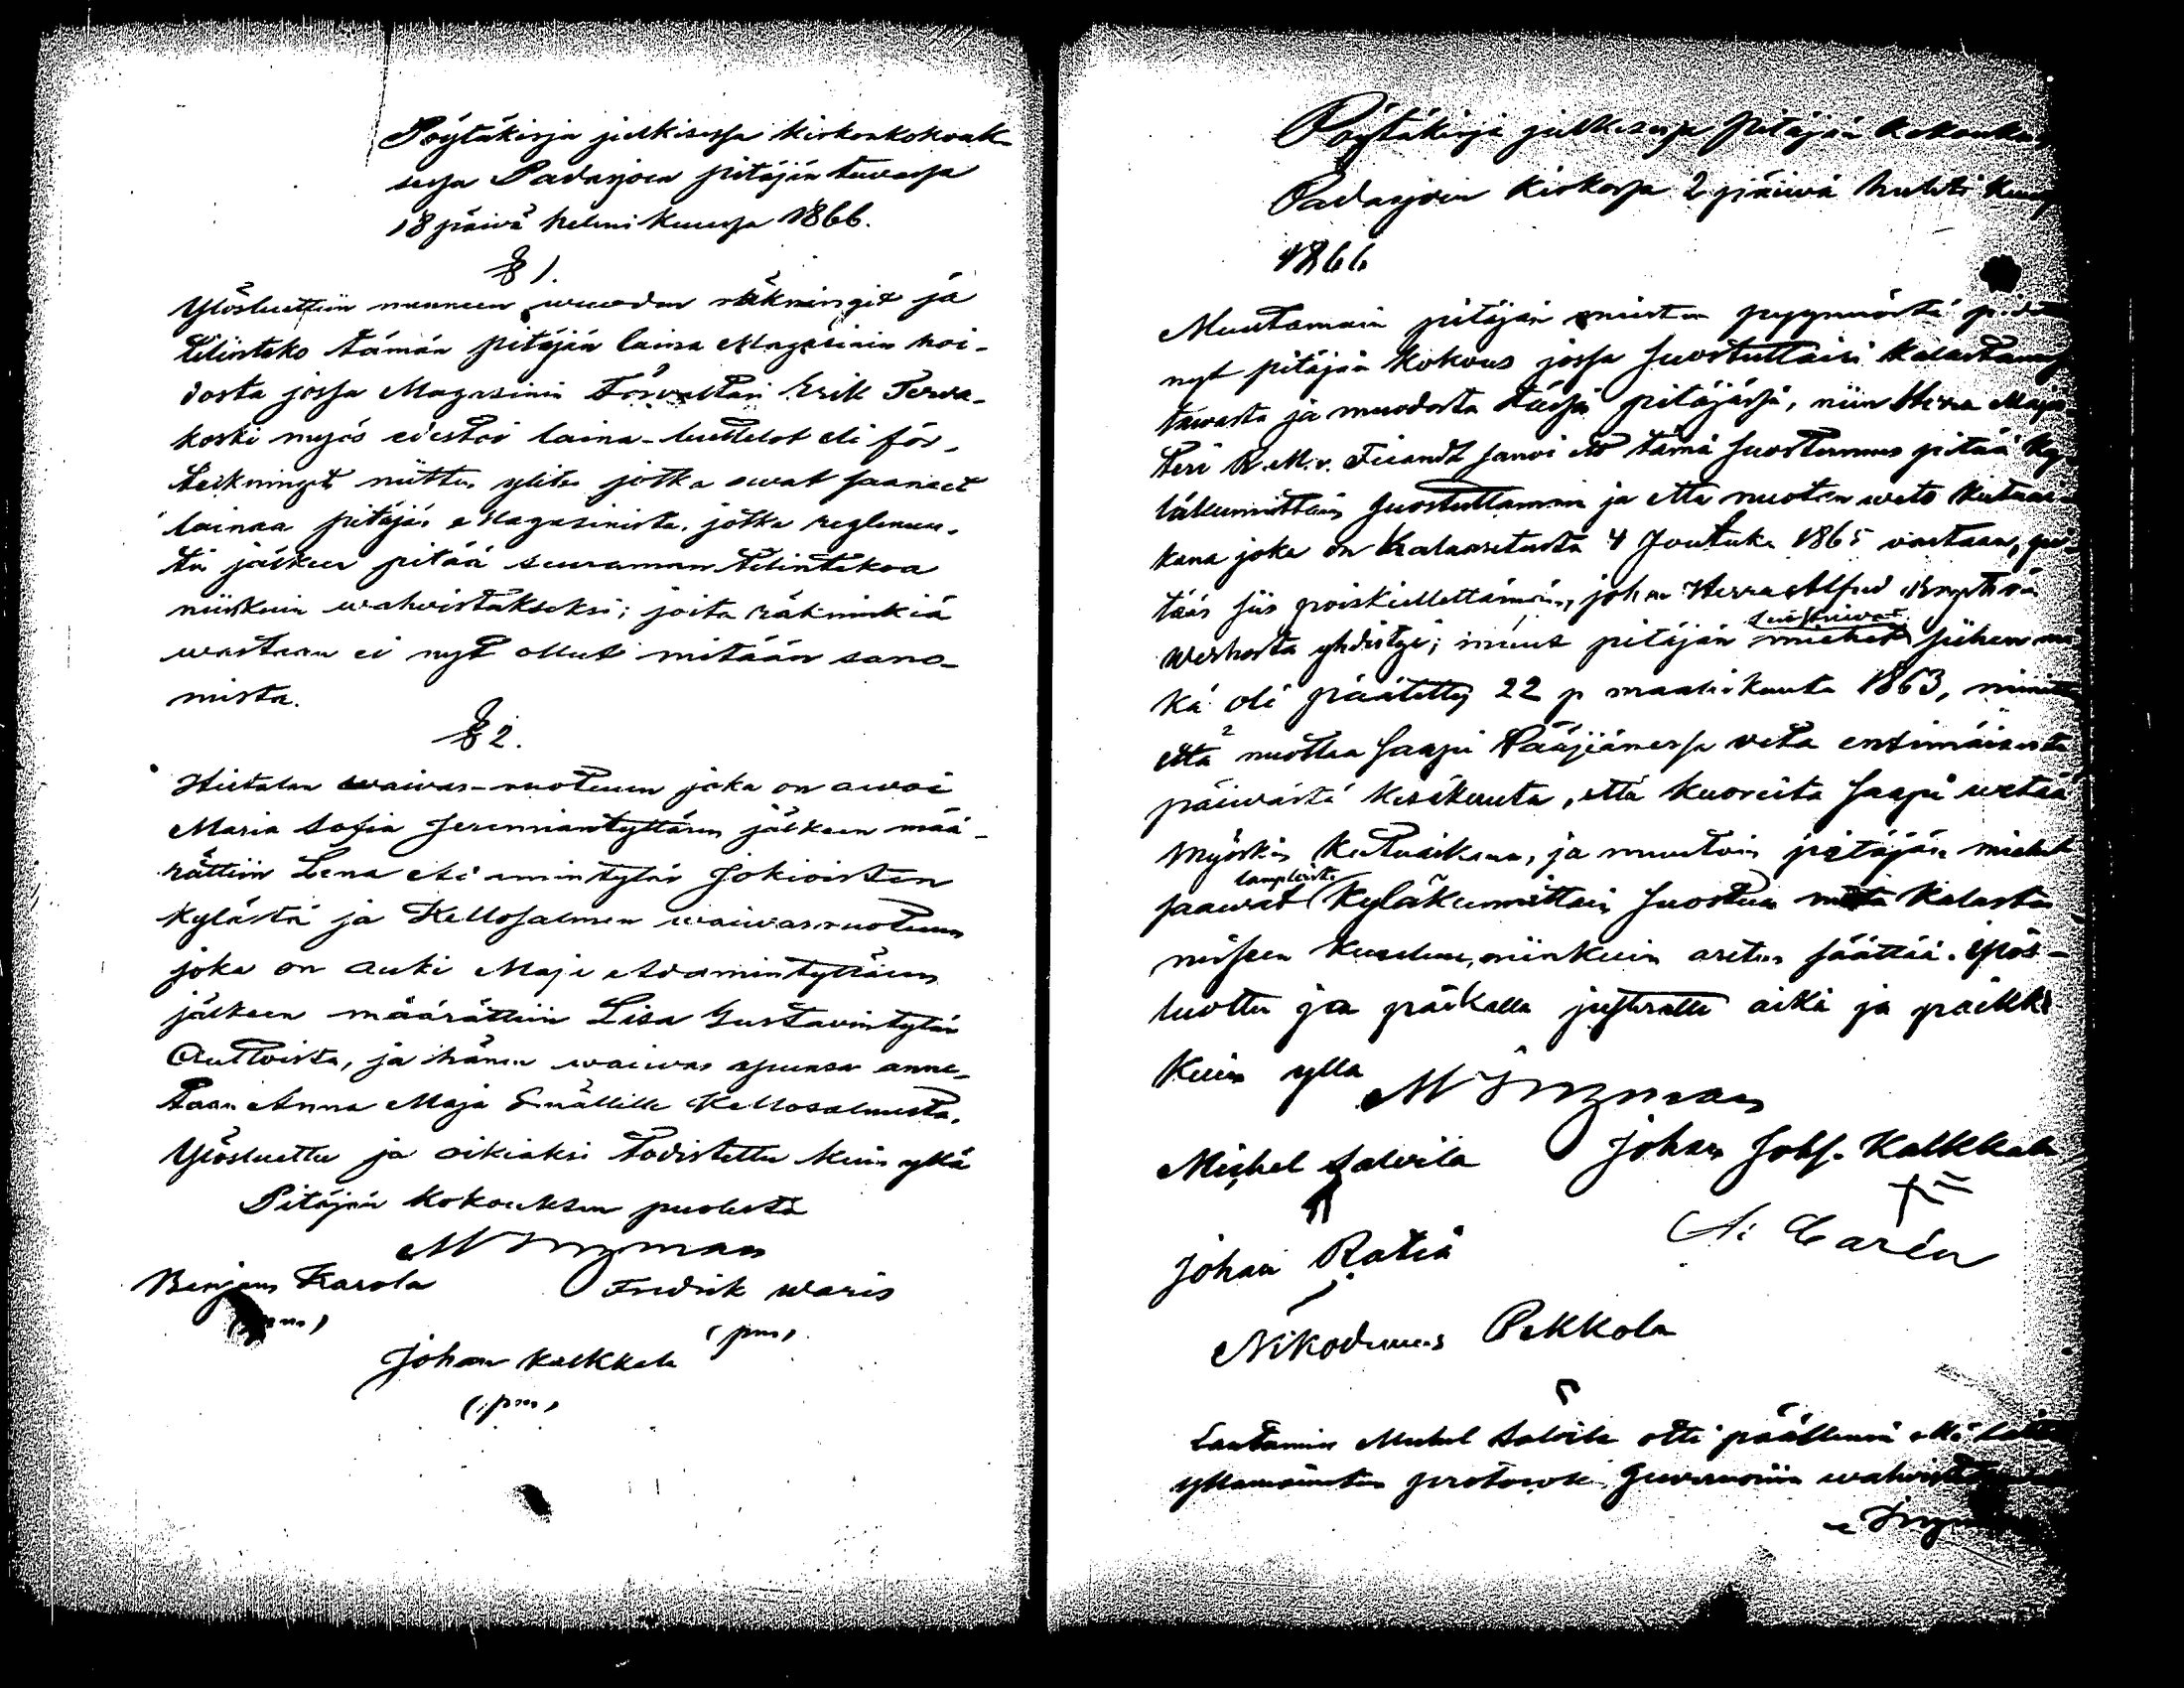 Pöytäkirja julkisessa kirkonkokouk-
sessa Padasjoen pitäjän tuvassa
18 päivä helmi kuussa 1866.
§ 1.
Ylösluettiin menneen vuoden räkningit ja
tilinteko tämän pitäjän laina Magasinin hoi-
dosta jossa Magasinin Förvaltari Erik Terva-
koski myös edestoi laina-luettelot eli för-
teikningit niitten ylitse jotka ovat saaneet
lainaa pitäjän Magasinista, jotka reglemen-
tin jälkeen pitää seuraaman tilintekoa
niinkuin wahwistukseksi; joita räkninkiä
wastaan ei nyt ollut mitään sano-
mista.
§ 2.
Hietalan waiwas-ruoteseen joka on awoi
Maria Sofia Jeremiantyttären jälkeen mää-
rättiin Lena Adamintytär Jokioisten
kylästä ja Kellosalmen waiwasruoteseen
joka on auki Maja Adamintyttären
jälkeen määrättiin Lisa Gustavintytär
Auttoista, ja hänen waiwas apunsa anne-
taan Anna Maja Snällille Kellosalmesta.
Ylösluettu ja oikiaksi todistettu kuin yllä
Pitäjän kokouksen puolesta
M Ingman
Benjam Karola Fredrik Waris
(pm)
Johan Kalkkala
(pm)
Pöytäkirja julkisessa pitäjän kokouksessa
Padasjoen kirkossa 2 päivä huhti kuussa
1866
Muutamain pitäjän miesten pyynnöstä
nyt pitäjän kokous jossa suostuttaisi kalastamisen
tavasta ja muodosta tässä pitäjässä, niin Herra
R. M. v. Fieandt sanoi että tämä suostumus pitää ky-
läkunnittain suostuttaman ja että nuotan weto kutuai-
kana joka on kalaasetusta 4 Jouluk. 1865 vastaan, pi-
tää siis poiskiellettämän, johon Herra Alfred
Werhosta yhdistyi; muut pitäjän miehet suostuivat siihen
kä oli päätetty 22 p maaliskuuta 1863, nimittäin
että nuottaa saapi Pääjänessä vetä ensimäisestä
päiwästä kesäkuuta, että kuoreita saapi vetää
myöskin kutuaikana, ja muutoin pitäjän miehet
saawat kyläkunnittain suostua kalasta-
misen kuin asetus säättää. Ylös-
luettu ja paikalla justerattu aika ja paikka
kuin yllä
M Ingman
Michel Salvila Johan Johs. Kalkkala
Johan Ratia A: Carén
Nikodemus Pekkola
Lautamies Michel Salvila otti päällensä
yllämainitun protocoli Guvernöriin
Ingman